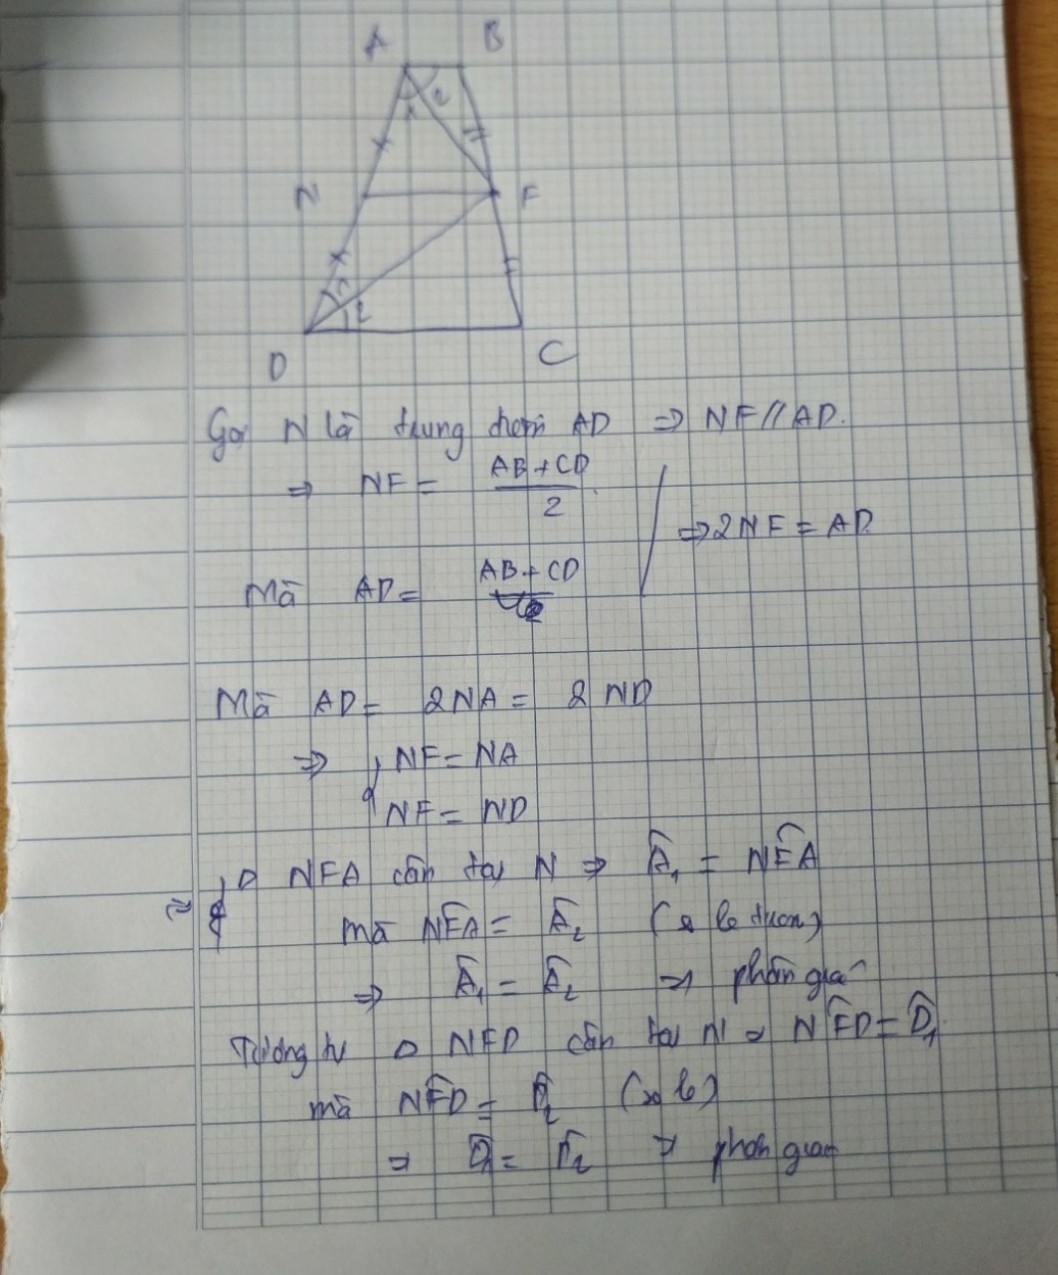 A B
1 2
N F
1 2
D C
Gọi N là trung điểm AD ⇒ NF // AD.
⇒ NF = AB + CD / 2
⇒ 2NF = AD
Mà AD = AB + CD
Mà AD = 2NA = 2ND
⇒ NF = NA
NF = ND
⇒ Δ NFA cân tại N ⇒ Â₁ = NF̂A
mà NF̂A = Â₂ (so le trong)
⇒ Â₁ = Â₂ → phân giác
Tương tự Δ NFD cân tại N ⇒ NF̂D = D̂₁
mà NF̂D = D̂₂ (so le)
⇒ D̂₁ = D̂₂ → phân giác